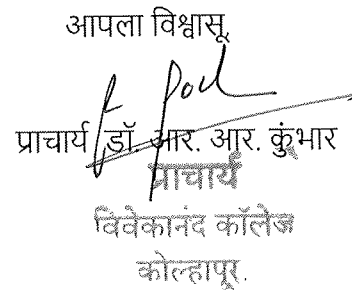 आपला विश्वासू,
प्राचार्य डॉ. आर. आर. कुंभार
प्राचार्य
विवेकानंद कॉलेज
कोल्हापूर.